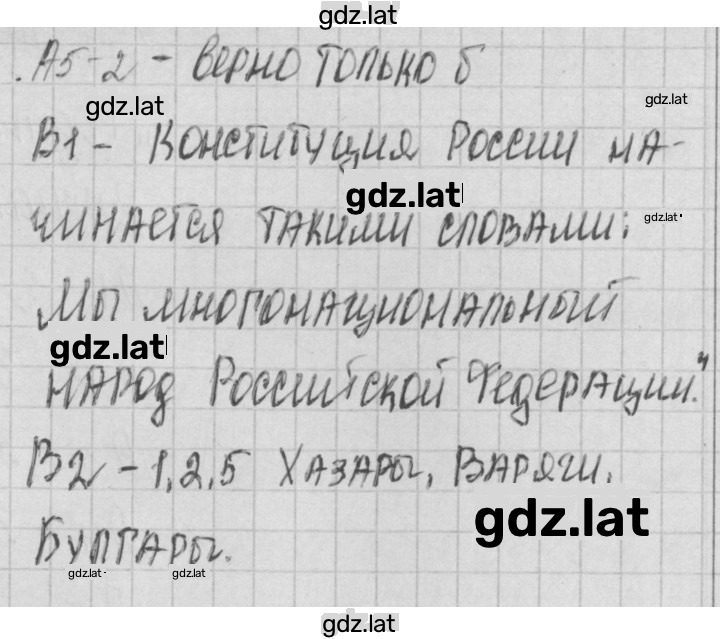 gdz.lat
.А5-2 - верно только б
gdz.lat
gdz.lat
В1 - Конституция России на-
gdz.lat
чинается такими словами:
gdz.lat
Мы многонациональный
gdz.lat
народ Российской Федерации."
В2 - 1,2,5 Хазары, Варяги.
gdz.lat
Булгары.
gdz.lat
gdz.lat
gdz.lat